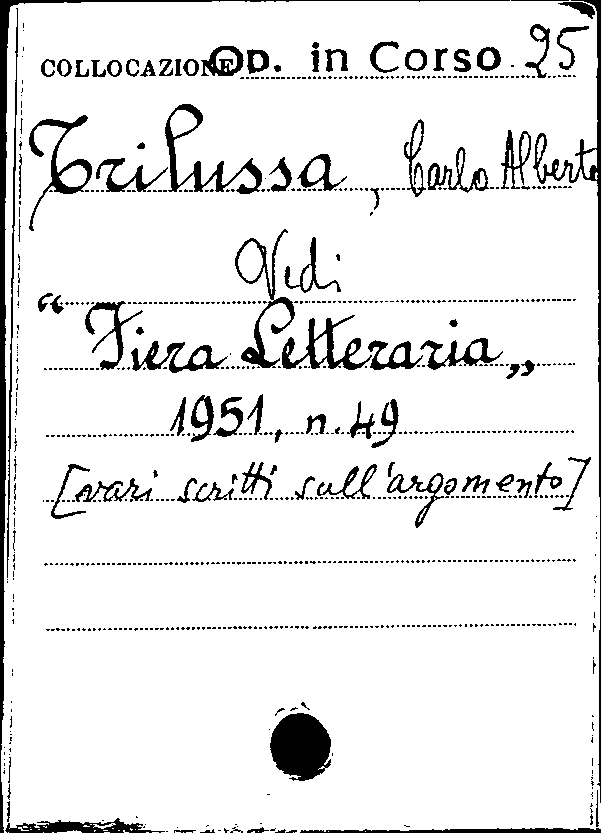 COLLOCAZIONE Op. in Corso 25
Trilussa, Carlo Alberto
Vedi
“Fiera Letteraria„
1951, n. 49
[vari scritti sull'argomento]